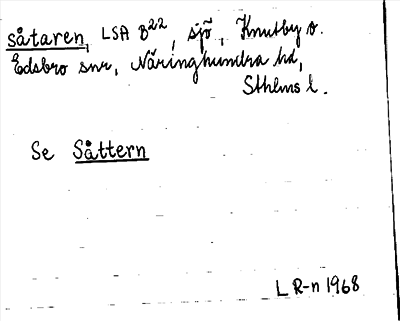 såtaren, LSA B22, sjö, Knutby o.
Edsbro snr, Näringhundra hd,
Sthlms l.
Se Såttern
L R-n 1968